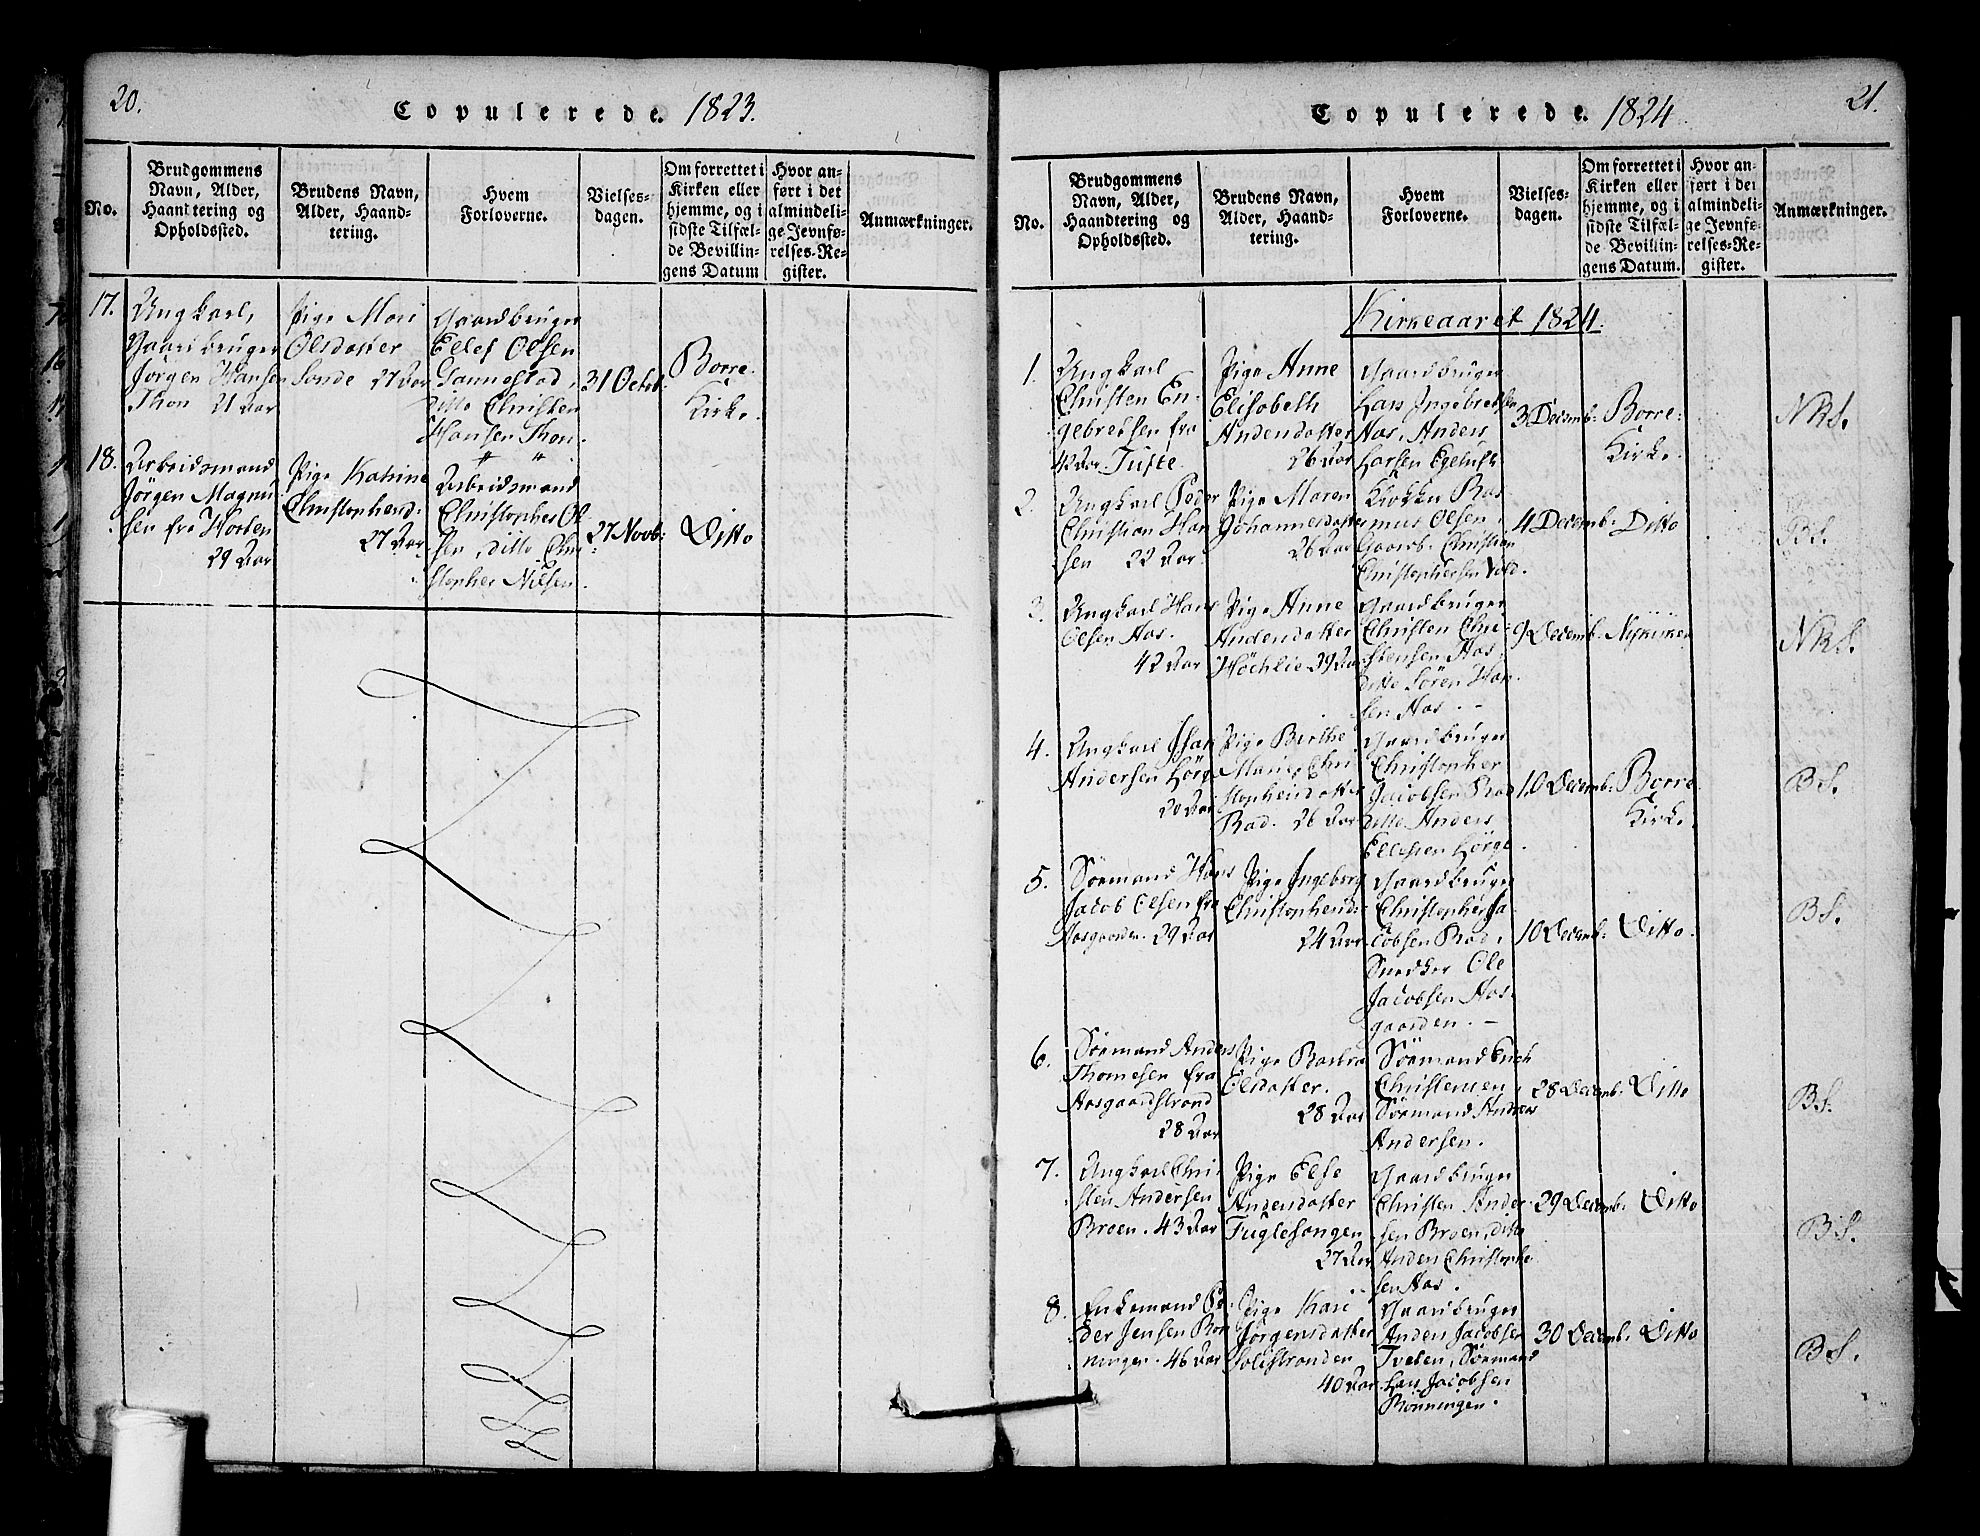 20.
Copulerede. 1823.
No.
Brudgommens
Navn, Alder,
Haandtering og
Opholdssted.
Brudens Navn,
Alder, Haand-
tering.
Hvem
Forloverne.
Vielses-
dagen.
Om forrettet i
Kirken eller
hjemme, og i
sidste Tilfæl-
de Bevillin-
gens Datum
Hvor an-
ført i det
almindeli-
ge Jevnfø-
relses-Re-
gister.
Anmærkninger.
17.
Ungkarl,
Gaardbruger
Jørgen Hansen
Thon 21 Aar
Pige Mari
Olsdatter
Sonde 27 Aar
Gaardbruger
Ellef Olsen
Gannestad,
ditto Christen
Hansen Thon.
31 Octob:
Borre
Kirke.
18.
Arbeidsmand
Jörgen Magnu-
sen fra Horten
29 Aar
Pige Katrine
Christophersd:
27 Aar.
Arbeidsmand
Christopher Ol-
sen, ditto Chri-
stopher Nilsen.
27 Novb:
Ditto
21.
Copulerede. 1824
No.
Brudgommens
Navn, Alder,
Haandtering og
Opholdssted.
Brudens Navn,
Alder, Haand-
tering.
Hvem
Forloverne.
Vielses-
dagen.
Om forrettet i
Kirken eller
hjemme, og i
sidste Tilfæl-
de Bevillin-
gens Datum.
Hvor an-
ført i det
almindeli-
ge Jevnfø-
relses-Re-
gister.
Anmærkninger.
Kirkeaaret 1824.
1.
Ungkarl
Christen En-
gebretsen fra
42 Aar. Tufte.
Pige Anne
Elisabeth
Andersdatter
26 Aar
Gaardbruger
Lars Ingebretsen
Aas, Anders
Larsen
3 Decemb:
Borre
Kirke.
NkS.
2.
Ungkarl Peder
Christian Han
sen 22 Aar.
Pige Maren
Johannesdatter
26 Aar
Ras
mus Olsen,
Gaardb. Christian
Christophersen Vold.
4 Decemb.
Ditto
BS.
3.
Ungkarl Hans
Olsen Aas.
42 Aar
Pige Anne
Andersdatter
29 Aar
Gaardbruger
Christen Chri-
stensen Aas,
ditto Sören Han
sen Aas. -
9 Decemb.
Nykirken
NkS.
4.
Ungkarl
Andersen Hörge
20 Aar.
Pige Birthe
Marie Chri
stophersdatter
Rad. 26 Aar
Gaardbruger
Christopher
Jacobsen Rad
ditto Anders
Ellefsen Hörge.
10 Decemb.
Borre
Kirke.
BS.
5.
Sömand Hans
Jacob Olsen fra
Aasgaarden. 29 Aar
Pige Ingeborg
Christophersd:
24 Aar.
Gaardbruger
Christopher Ja-
cobsen Rad,
Snedker Ole
Jacobsen Aas-
gaarden. -
10 Decemb.
Ditto.
BS.
6.
Sömand Anders
Thomesen fra
Aasgaardstrand
28 Aar
Pige Barbra
Olsdatter.
28 Aar
Sömand
Christensen,
Sömand Andreas
Andersen.
28 Decemb.
Ditto
BS.
7.
Ungkarl Chri-
sten Andersen
Broen. 43 Aar
Pige Else
Andersdatter
Fuglesangen
27 Aar
Gaardbruger
Christen Ander-
sen Broen, ditto
Anders Christophe
sen Aas.
29 Decemb.
Ditto
BS.
8.
Enkemand Pe-
der Jensen Rön
ningen. 46 Aar
Pige Kari
Jörgensdatter
40 Aar.
Gaardbruger
Anders Jacobsen
Tveten, Sömand
Lars Jacobsen
Rönningen.
30 Decemb.
Ditto
BS.